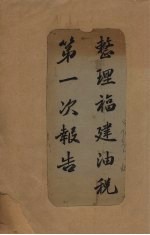 整理福建油税
第一次報告